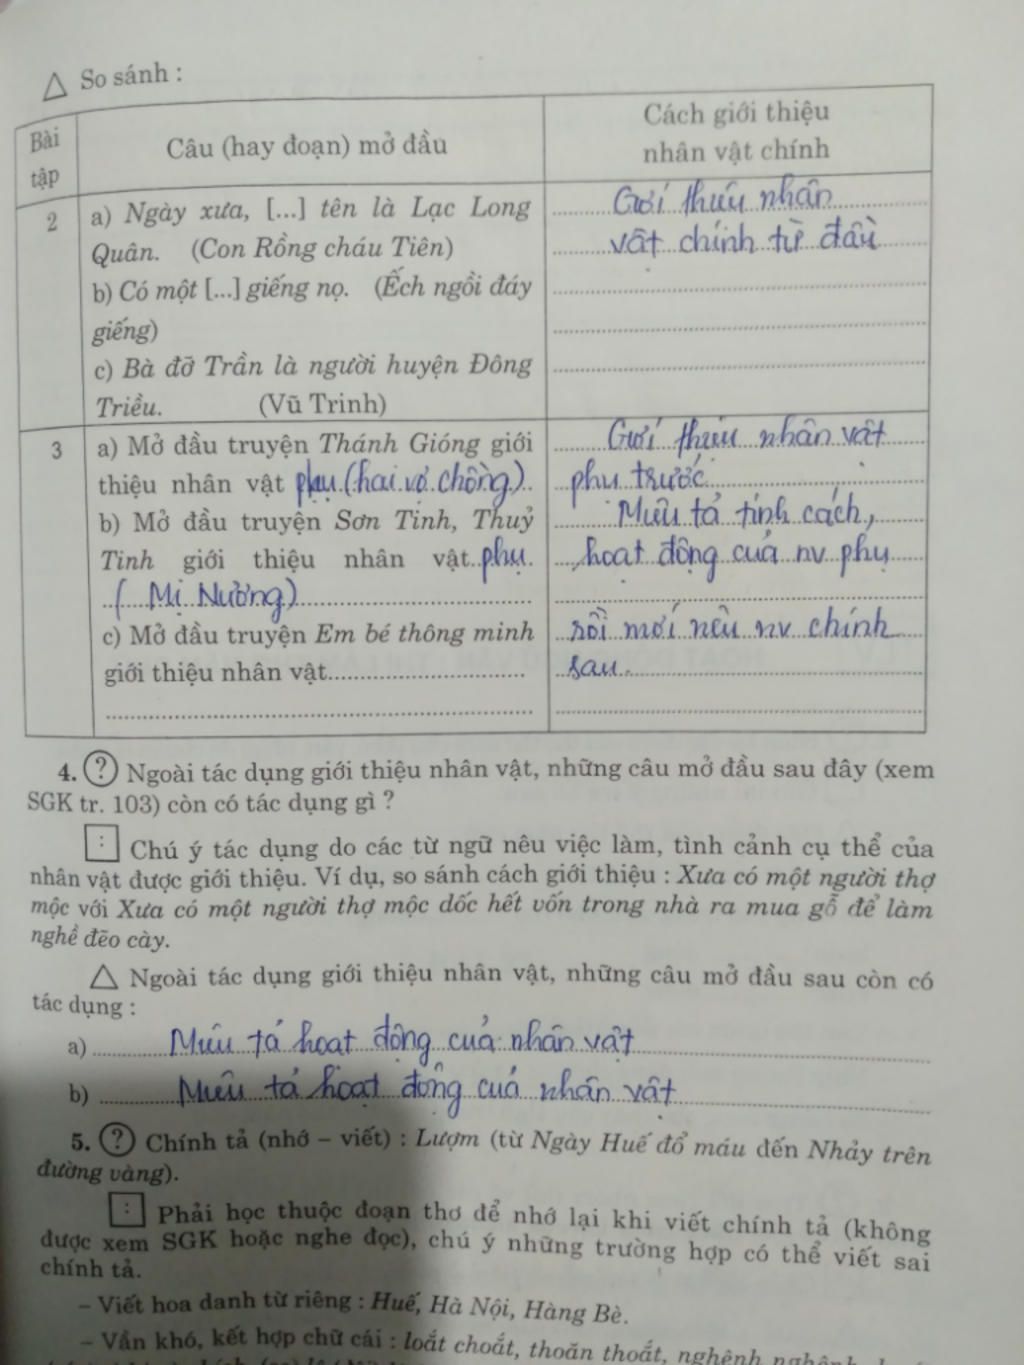 △ So sánh :
Bài tập
Câu (hay đoạn) mở đầu
Cách giới thiệu
nhân vật chính
2
a) Ngày xưa, [...] tên là Lạc Long
Quân. (Con Rồng cháu Tiên)
b) Có một [...] giếng nọ. (Ếch ngồi đáy
giếng)
c) Bà đỡ Trần là người huyện Đông
Triều. (Vũ Trinh)
Giới thiệu nhân
vật chính từ đầu
3
a) Mở đầu truyện Thánh Gióng giới
thiệu nhân vật phụ (hai vợ chồng)
b) Mở đầu truyện Sơn Tinh, Thuỷ
Tinh giới thiệu nhân vật phụ.
( Mị Nương)
c) Mở đầu truyện Em bé thông minh
giới thiệu nhân vật
Giới thiệu nhân vật
phụ trước
Miêu tả tính cách,
hoạt động của nv phụ
rồi mới nêu nv chính
sau.
4. ? Ngoài tác dụng giới thiệu nhân vật, những câu mở đầu sau đây (xem
SGK tr. 103) còn có tác dụng gì ?
: Chú ý tác dụng do các từ ngữ nêu việc làm, tình cảnh cụ thể của
nhân vật được giới thiệu. Ví dụ, so sánh cách giới thiệu : Xưa có một người thợ
mộc với Xưa có một người thợ mộc dốc hết vốn trong nhà ra mua gỗ để làm
nghề đẽo cày.
△ Ngoài tác dụng giới thiệu nhân vật, những câu mở đầu sau còn có
tác dụng :
a) Miêu tả hoạt động của nhân vật
b) Miêu tả hoạt động của nhân vật
5. ? Chính tả (nhớ – viết) : Lượm (từ Ngày Huế đổ máu đến Nhảy trên
đường vàng).
: Phải học thuộc đoạn thơ để nhớ lại khi viết chính tả (không
được xem SGK hoặc nghe đọc), chú ý những trường hợp có thể viết sai
chính tả.
– Viết hoa danh từ riêng : Huế, Hà Nội, Hàng Bè.
– Vần khó, kết hợp chữ cái : loắt choắt, thoăn thoắt, nghênh nghênh